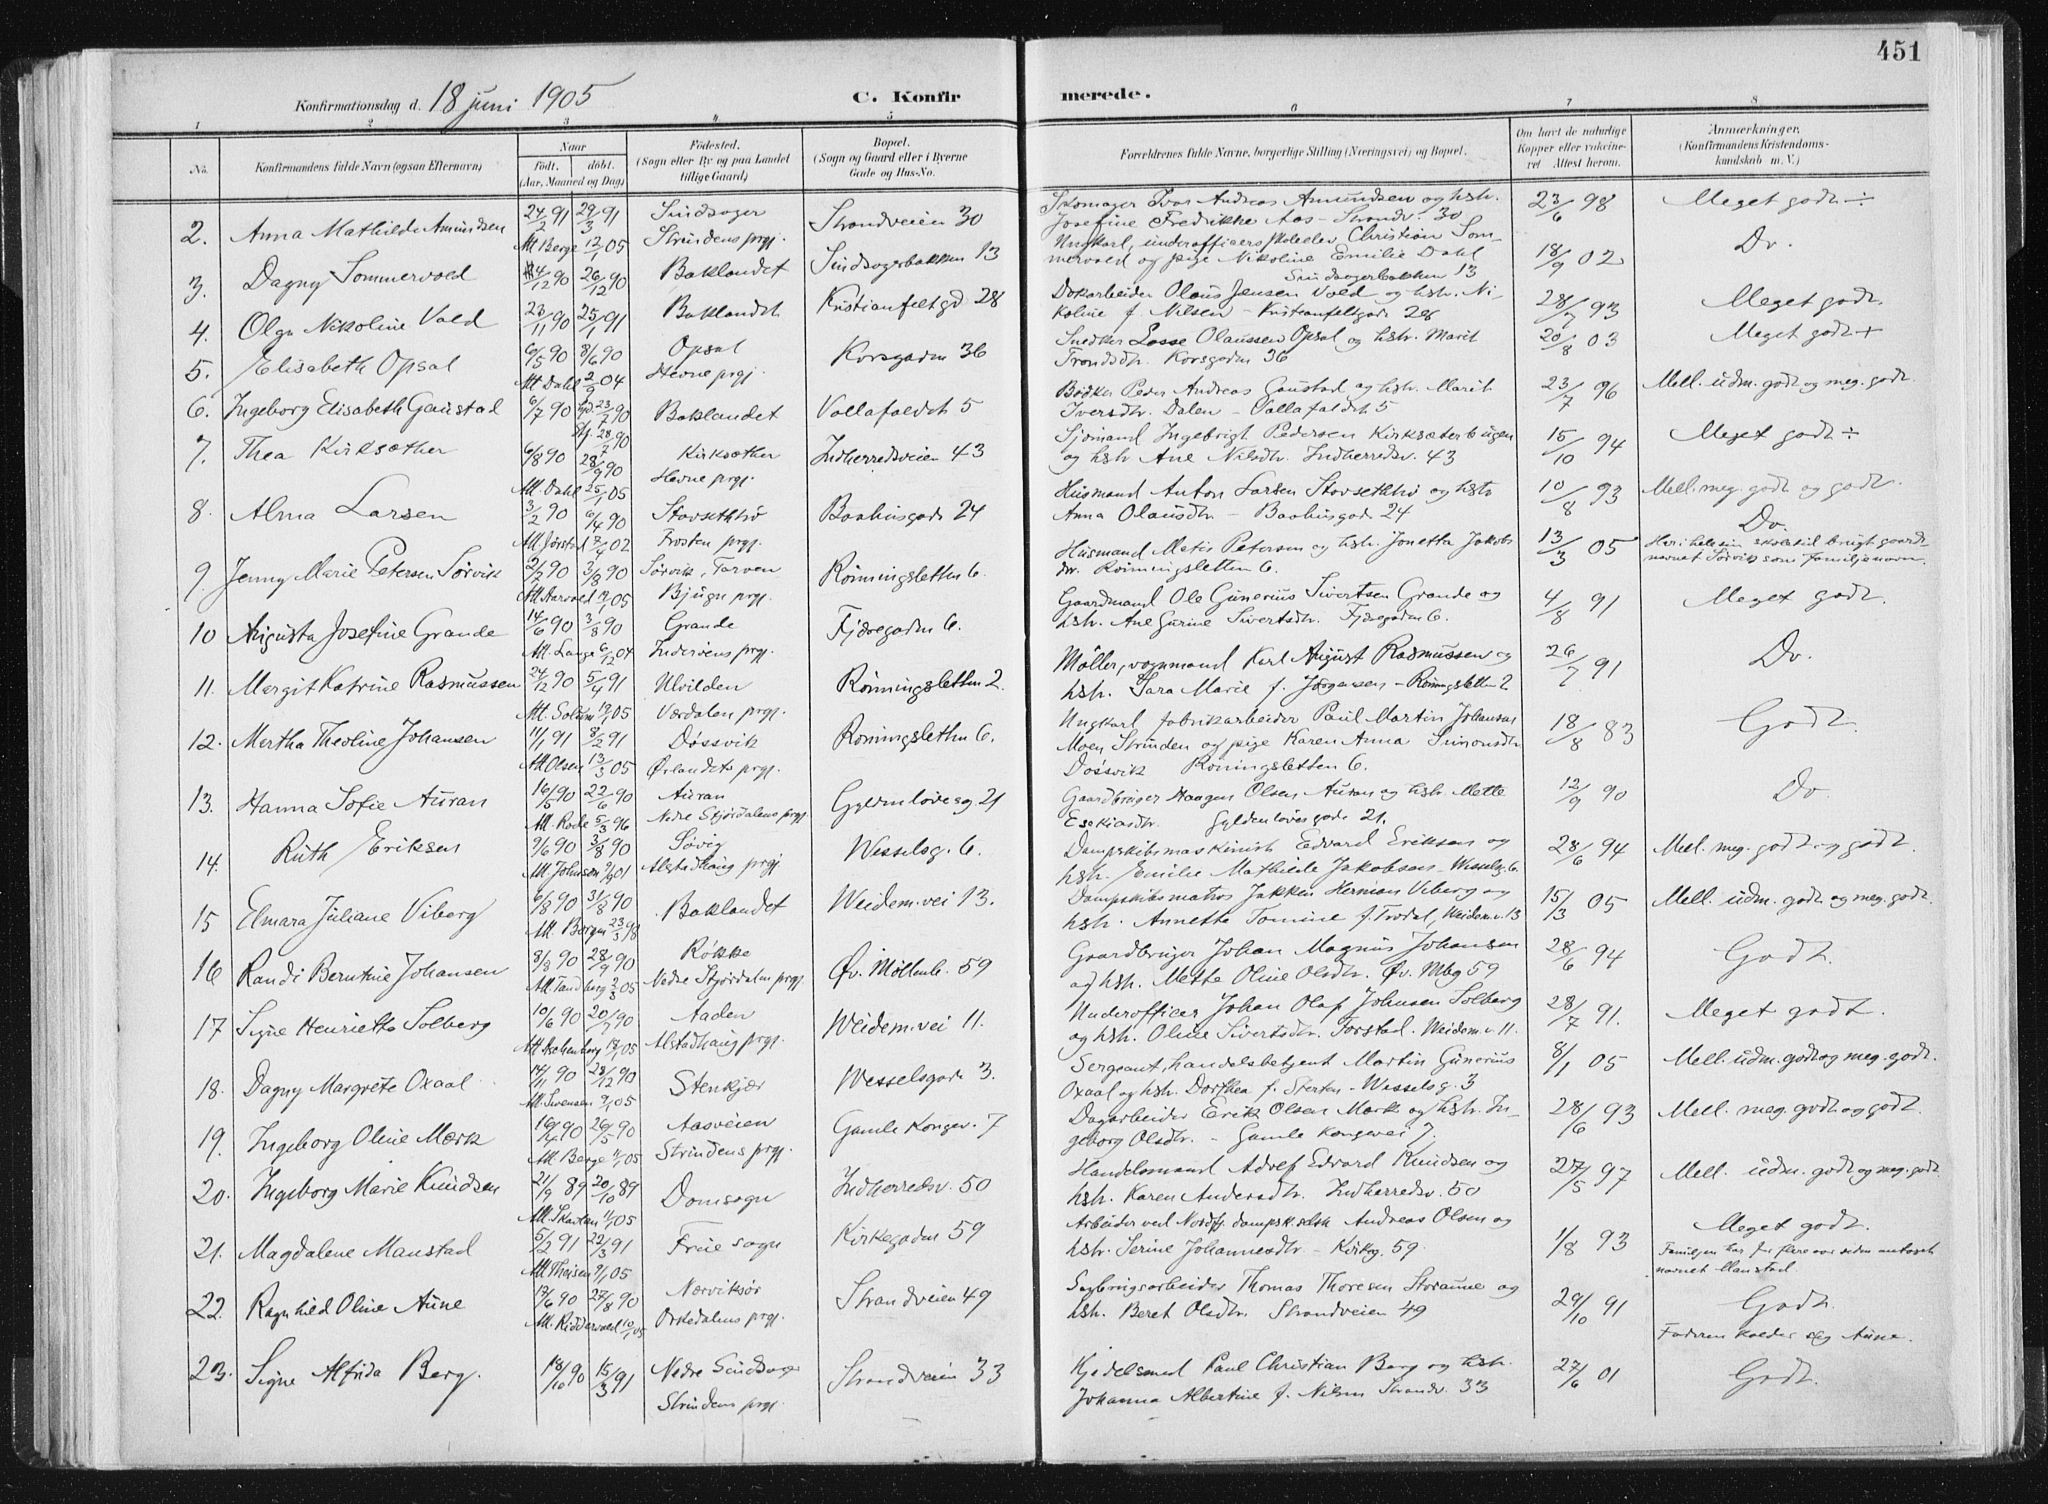 451
Konfirmationsdag d. 18 juni 1905 C. Konfirmerede.
1 2 3 4 5 6 7 8
No. Konfirmandens fulde Navn (ogsaa Efternavn) Naar Födt. döbt. (Aar, Maaned og Dag) Födested. (Sogn eller By og paa Landet tillige Gaard) Bopæl. (Sogn og Gaard eller i Byerne Gade og Hus-No. Forældrenes fulde Navne, borgerlige Stilling (Næringsvei) og Bopæl. Om havt de naturlige Kopper eller vakcineret Attest herom. Anmærkninger. (Konfirmandens Kristendomskundskab m. V.)
2. Anna Mathilde Amundsen 24/2 91 29/3 91 Sindsager Strandveien 30 Skomager Ivar Andreas Amundsen og hstr. 23/6 98 Meget godt ÷
Att. Berge 12/1 05 Strindens prgj. Josefine Fredrikke Aas - Strandv. 30
3. Dagny Sommervold 4/12 90 26/12 90 Baklandet Sindsagerbakken 13 Ungkarl, underofficersskoleelev Christian Som- 18/9 02 Do.
mervold og pige Nikoline Emilie Dahl
Sindsagerbakken 13
4. Olga Nikoline Vold 23/11 90 25/1 91 Baklandet Kristianfeltgd 28 Dokarbeider Olaus Jensen Vold og hstr. Ni- 28/7 93 Meget godt.
koline f. Nilsen - Kristianfeltgade 28
5. Elisabeth Opsal 6/5 90 8/6 90 Opsal Korsgaden 36 Snedker Lasse Olaussen Opsal og hstr. Marit 20/8 03 Meget godt +
Att. Dahl 2/9 04 Hevne prgj. Trondsdtr. Korsgaden 36
6. Ingeborg Elisabeth Gaustad 6/7 90 23/7 90 Baklandet Vollafaldet 5 Bødker Peder Andreas Gaustad og hstr. Marit 23/7 96 Mell. udm. godt og meg. godt.
28/9 90 Iversdtr. Dalen - Vollafaldet 5
7. Thea Kirksæther 6/8 90 28/9 90 Kirksæther Indherredsveien 43 Sjømand Ingebrigt Pedersen Kirksæterbugen 15/10 94 Meget godt ÷
Att. Dahl 25/1 05 Hevne prgj. og hstr Ane Nilsdtr. Indherredsv. 43
8. Alma Larsen 3/2 90 6/4 90 Storsethtrø Baahusgade 24 Husmand Anton Larsen Storsethtrø og hstr 10/8 93 Mell. meg. godt og godt.
Att. Jørstad 7/4 02 Frosten prgj. Anna Olausdtr - Baahusgade 24
9. Jenny Marie Petersen Sørvik 2/7 90 3/8 90 Sørvik, Tarven Rönningsletten 6. Husmand Metis Petersen og hstr. Jonetta Jakobs 13/3 05 Do.
Att. Aarvold 05 Bjugn prgj. dtr. Rönningsletten 6. navnet Sørvik som Familjenavn.
10 Augusta Josefine Grande 14/6 90 3/8 90 Grande Fjæregaden 6. Gaardmand Ole Gunerius Sivertsen Grande og 4/8 91 Meget godt.
Att. Lange 6/12 04 Inderøens prgj. hstr. Ane Gurine Sivertsdtr. Fjæregaden 6.
11. Margit Katrine Rasmussen 24/12 90 5/4 91 Ulvilden Rönningsletten 2. Møller, vognmand Karl August Rasmussen og 26/7 91 Do.
Att. Solum 05 Værdalen prgj. hstr. Sara Marie f. Jørgensen - Rönningsletten 2
12. Martha Theoline Johansen 14/1 91 8/2 91 Døssvik Rönningsletten 6. Ungkarl fabrikarbeider Paul Martin Johansen 18/8 83 Godt.
Att. Olsen 13/3 05 Ørlandets prgj. Moen Strinden og pige Karen Anna Simonsdtr
Døssvik Röningsletten 6.
13. Hanna Sofie Auran 16/5 90 22/6 90 Auran Gyldenløvesg 21 Gaardbruger Haagen Olsen Auran og hstr. Mette 12/9 90 Do.
Att. Rode 5/3 96 Nedre Stjørdalens prgj Esekiasdtr. Gyldenløvesgade 21.
14. Ruth Eriksen 9/6 90 3/8 90 Søvig Wesselsg. 6. Dampskibsmaskinist Edvard Eriksen og 28/6 94 Mell. meg. godt og godt.
Att. Johnsen 01 Alstadhaug prgj hstr. Emilie Mathilde Jakobsen - Wesselsg. 6.
15 Elmara Juliane Viberg 6/8 90 31/8 90 Baklandet Weidem.vei 13. Dampskibsmatros Jakken Herman Viberg og 15/3 05 Mell. udm. godt og meg. godt.
Att. Borgen 23/3 98 hstr. Annetta Tomine f. Trodal, Weidem.v. 13
16 Randi Berntine Johansen 8/8 90 28/9 90 Røkke Øv. Möllenb. 59 Gaardbruger Johan Magnus Johansen 28/6 94 Godt.
Att. Tandberg 2/3 05 Nedre Stjørdalen prgj. og hstr. Mette Oline Olsdtr. Øv. Mbg 59
17 Signe Henriette Solberg 10/6 90 20/7 90 Aaden Weidem.vei 11. Underofficer Johan Olaf Johnsen Solberg 28/7 91. Meget godt.
Att Aschenberg 18/1 05 Alstadhaug prgj. og hstr. Oline Sivertsdtr. Forstad. Weidem.v 11.
18. Dagny Margrete Oxaal 14/11 90 28/12 90 Stenkjær Wesselsgade 3. Sergeant, handelsbetjent Martin Gunerius 8/1 05 Mell. udm. godt og meg. godt.
Att. Svensen 9/1 05 Oxaal og hstr. Dorthea f. Sterten - Wesselsg. 3
19. Ingeborg Oline Mærk 16/4 90 26/5 90 Aasveien Gamle Kongev. 7 Dagarbeider Erik Olsen Mærk og hstr. In- 28/6 93 Mell. meg. godt og godt.
Att. Berge 05 Strindens prgj. geborg Olsdtr. - Gamle Kongevei 7.
20. Ingeborg Marie Knudsen 21/9 89 20/10 89 Domsogn Indherredsv. 50 Handelsmand Adolf Edvard Knudsen og 27/5 97 Mell. udm. godt og meg. godt
Att. Skavlan 05 hstr. Karen Andersdtr. Indherredsv. 50
21. Magdalene Manstad 5/2 91 22/3 91 Frue sogn Kirkegaden 59 Arbeider ved Nordfj. dampsk.selsk Andreas Olsen og 1/8 93 Meget godt.
Att Theisen 9/1 05 hstr. Serine Johannesdtr - Kirkeg. 59. Familjen har for flere aar siden antaget
navnet Manstad
22. Ragnhild Oline Aune 17/6 90 27/8 90 Nærviksør Strandveien 49 Sagbrugsarbeider Thomas Thoresen Storaune og 29/10 91 Godt.
Att. Ridderwold 10/1 05 Orkedalens prgj. hstr. Beret Olsdtr. Strandveien 49 Faderen kalder sig Aune.
23. Signe Alfrida Berg. 18/10 90 15/3 91 Nedre Sindsager Strandveien 33 Kjedelsmed Paul Christian Berg og hstr. 27/6 01 Godt.
Strindens prgj Johanna Albertine f. Nilsen Strandv. 33